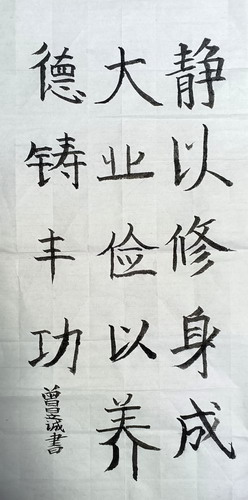 静以修身成
大业俭以养
德铸丰功
曾昱诚書